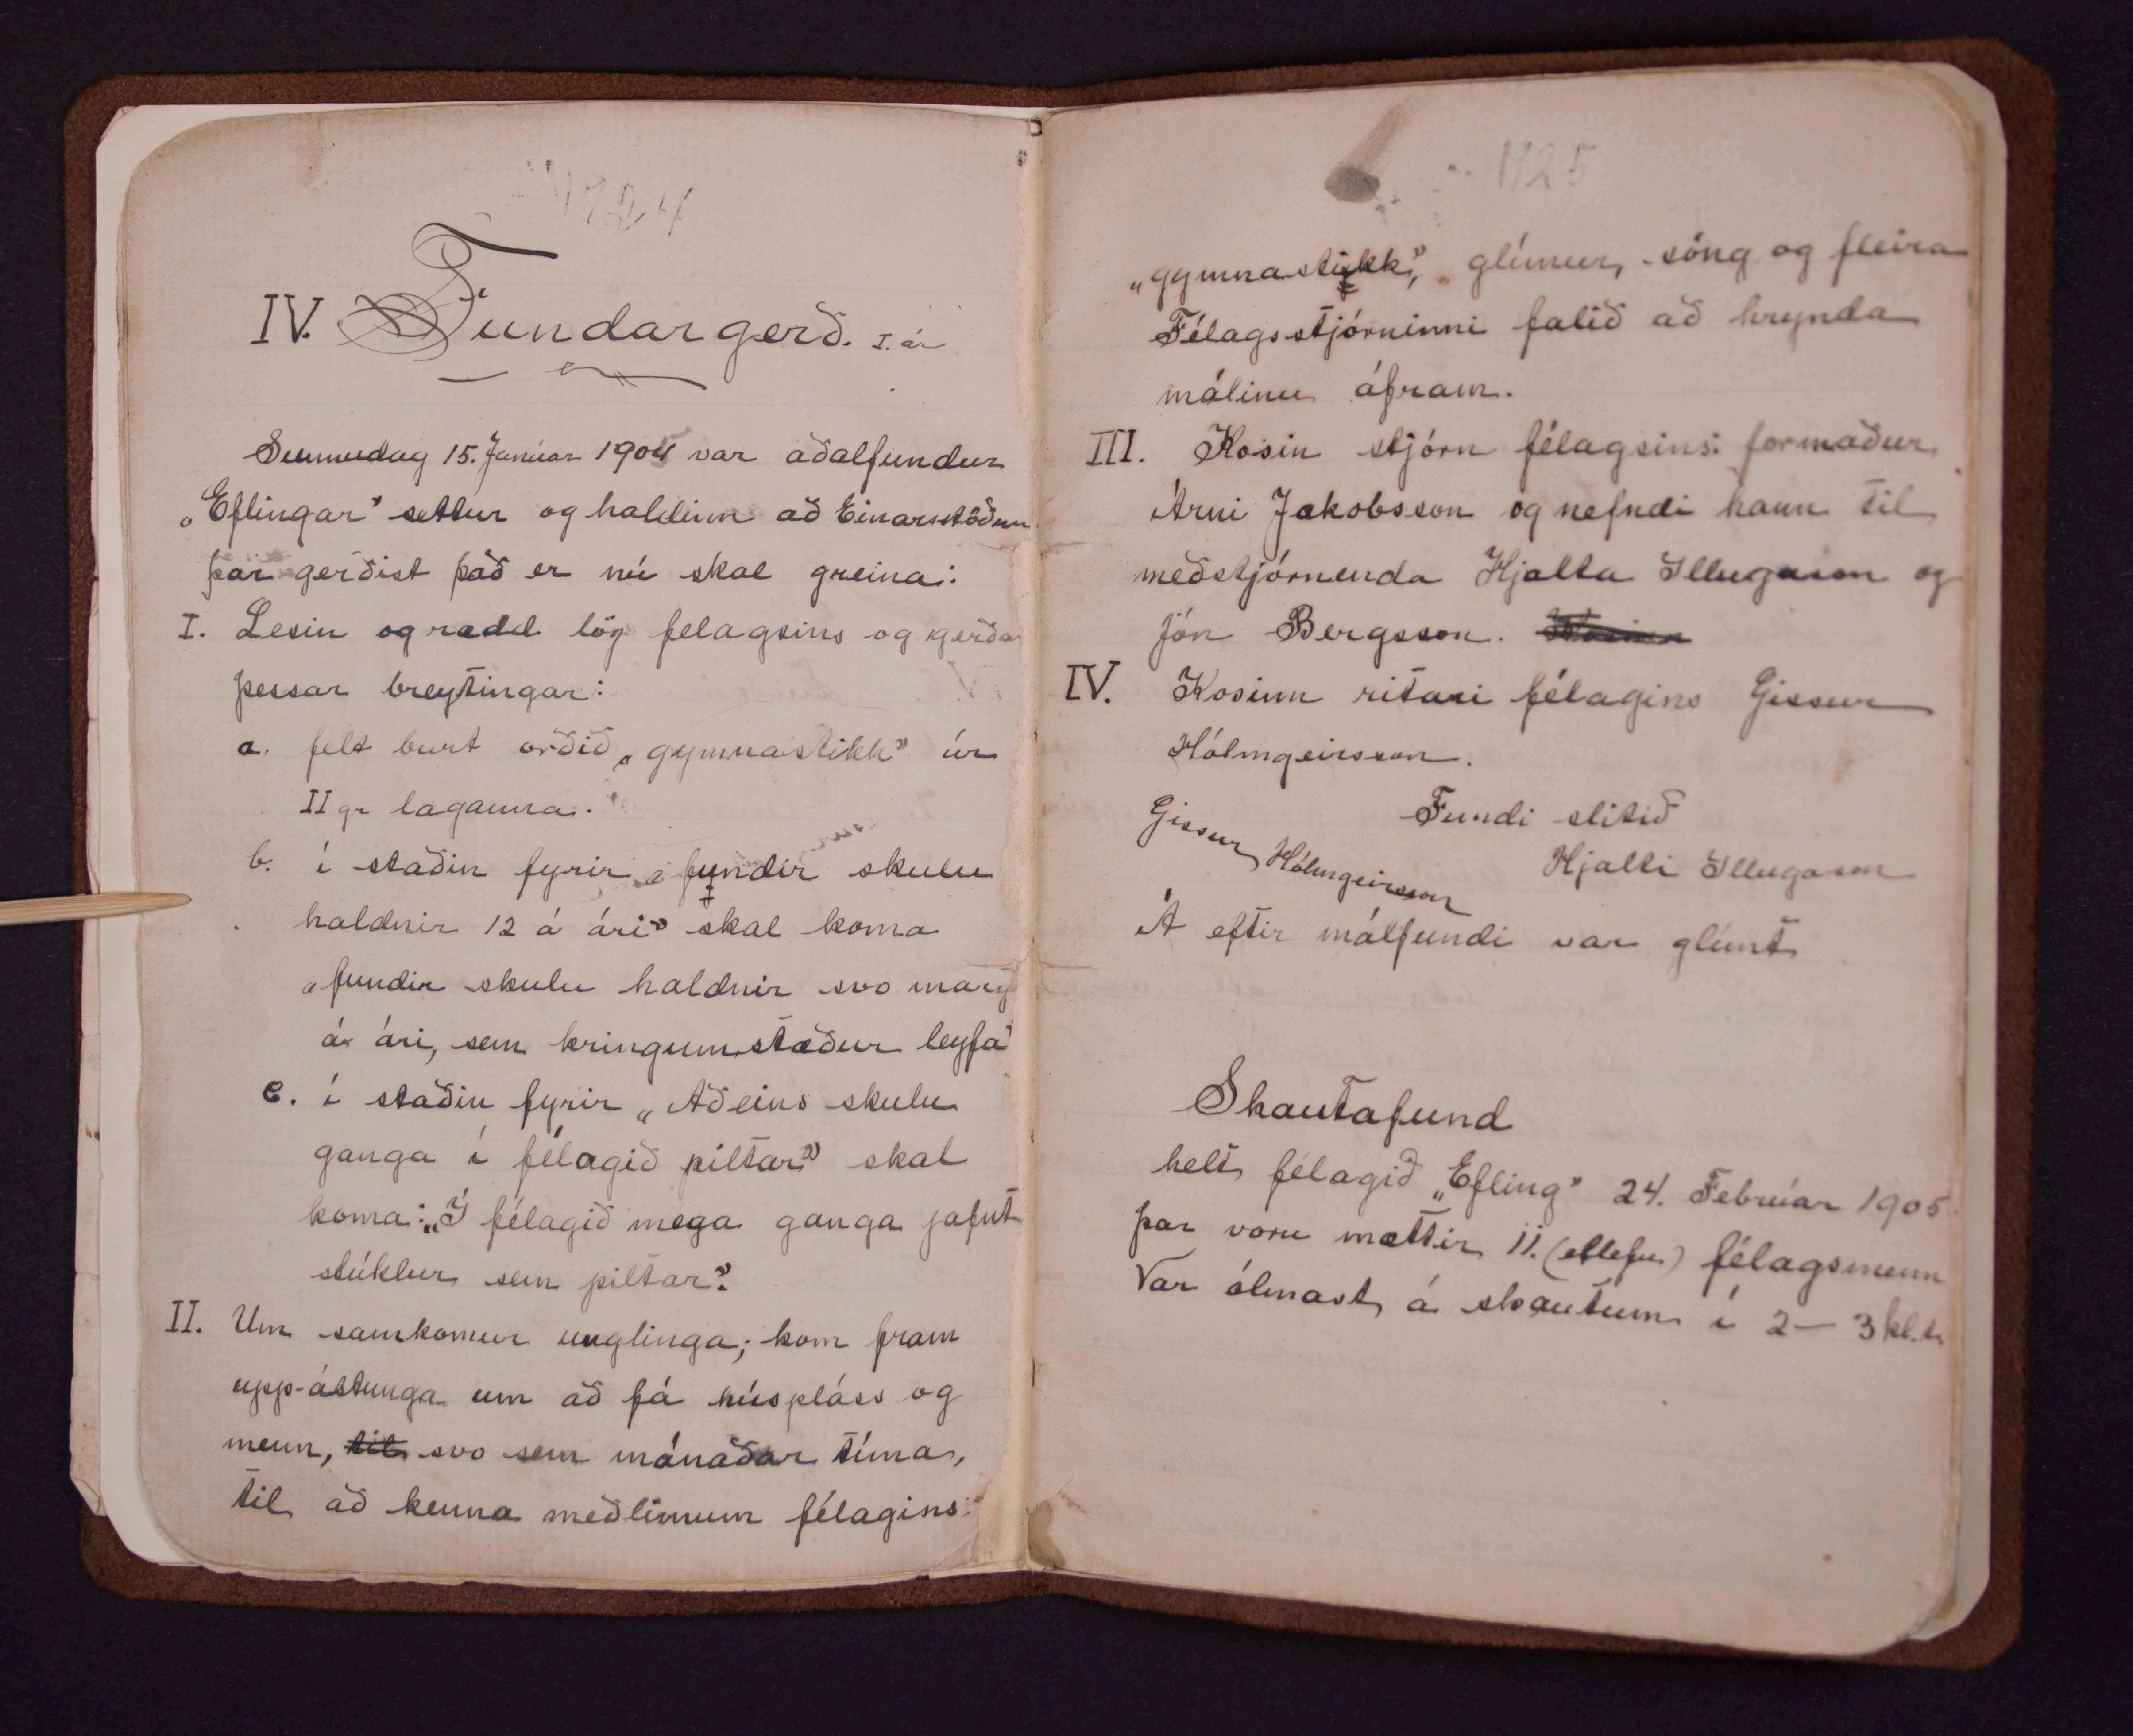 IV. Fundargerð. I. ár
Sunnudag 15. Janúar 1904 var aðalfundur
„Eflingar” settur og haldinn að Einarsstöðum
þar gerðist það er nú skal greina:
I. Lesin og rædd lög felagsins og gerðar
þessar breytingar:
a. felt burt orðið „gymnastikk” úr
II gr laganna.
b. í staðin fyrir „fundir skulu
haldnir 12 á ári” skal koma
„fundir skulu haldnir svo marg
á ári, sem kringumstæður leyfa”
c. í staðin fyrir „Aðeins skulu
ganga í félagið piltar” skal
koma: „Í félagið mega ganga jafnt
stúlkur sem piltar”.
II. Um samkomur unglinga; kom fram
upp-ástunga um að fá húspláss og
menn, til svo sem mánaðar tíma,
til að kenna meðlimum félagins:
1125
„gymnastikk”, glímur, söng og fleira
Félagsstjórninni falið að hrynda
málinu áfram.
III. Kosin stjórn félagsins: formaður
Árni Jakobsson og nefndi hann til
meðstjórnenda Hjalta Illugason og
Jón Bergsson. Kosinn
IV. Kosinn ritari félagins Gissur
Hólmgeirsson.
Fundi slitið
Gissur Hólmgeirsson
Hjalti Illugason
Á eftir málfundi var glímt
Skautafund
helt félagið „Efling” 24. Februar 1905
þar voru mættir 11. (ellefu) félagsmenn
Var ólmast á skautum í 2–3 kl.t.